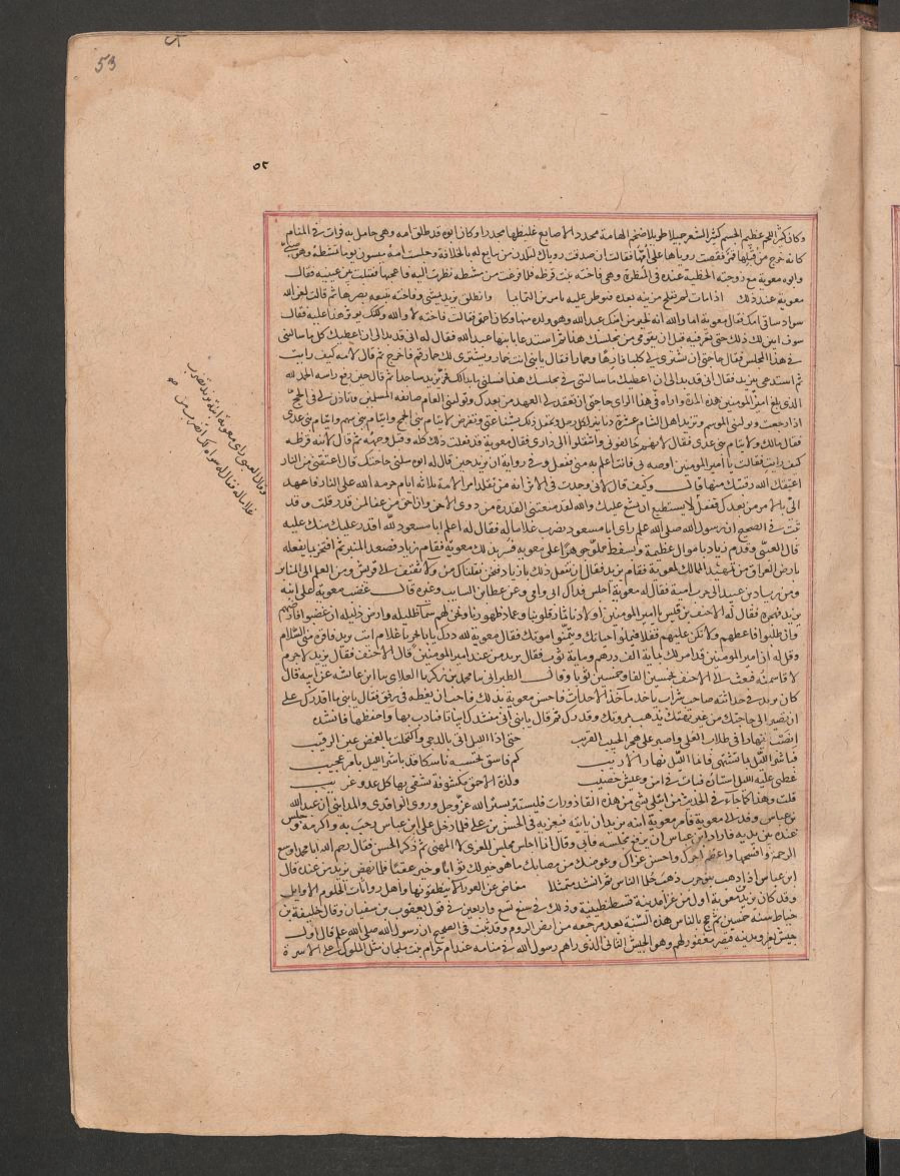 53
٥٢
وكان كثير اللحم عظيم الجسم كثير الشعر جميلا طويلا ضخم الهامة محدد الاصابع غليظها مجدرا وكان ابوه قد طلق امه وهي حامل به فرات في المنام
كانه خرج من قبلها قمر فقصت روياها على امها فقالت ان صدقت روياك لتلدن من يبايع له بالخلافة وجلست امه ميسون يوما تمشطه وهو صبي
وابوه معوية مع زوجته الحظية عنده في المنظرة وهي فاختة بنت قرظة فلما فرغت من مشطه نظرت اليه فاعجبها فقبلت بين عينيه فقال
معوية عند ذلك اذا مات لم تفلح مزينة بعده فنوطي عليه يا مزين التمايما وانطلق يزيد يمشي وفاختة تتبعه بصرها ثم قالت لعن الله
سواد ساقي امك فقال معوية اما والله انه لخير من ابنك عبد الله وهو ولده منها وكان احمق فقالت فاختة لا والله ولكنك توثر هذا عليه فقال
سوف ابين لك ذلك حتى تعرفيه قبل ان تقومي من مجلسك هذا ثم استدعا بابنها عبد الله فقال له انه قد بدا لي ان اعطيك كل ما سالتني
في هذا المجلس فقال حاجتي ان تشتري لي كلبا فارها وحمارا فقال يا بني انت حمار ويشترى لك حمار قم فاخرج ثم قال لامه كيف رايت
ثم استدعى بيزيد فقال اني قد بدا لي ان اعطيك ما سالتني في مجلسك هذا فسلني ما بدا لك فخر يزيد ساجدا ثم قال حين رفع راسه الحمد لله
الذي بلغ امير المومنين هذه المدة واراه في هذا الراي حاجتي ان تعقد لي العهد من بعدك وتوليني العام صايفة المسلمين وتاذن لي في الحج
اذا رجعت وتوليني الموسم وتزيد اهل الشام عشرة دنانير لكل رجل وتجعل ذلك بشفاعتي وتفرض لايتام بني جمح وايتام بني سهم وايتام بني عدي
فقال مالك ولايتام بني عدي فقال لانهم حالفوني وانتقلوا الى داري فقال معوية قد فعلت ذلك كله وقبل وجهه ثم قال لابنة قرظة
كيف رايت فقالت يا امير المومنين اوصه بي فانت اعلم به مني ففعل وفي رواية ان يزيد حين قال له ابوه سلني حاجتك قال اعتقني من النار
اعتقك الله رقبتك منها قال وكيف قال لاني وجدت في الاثر انه من تقلد امر الامة ثلاثة ايام حرمه الله على النار فاعهد
الي بالامر من بعدك ففعل
ثبت في الصحيح ان رسول الله صلى الله عليه راى ابا مسعود يضرب غلاما له فقال له اعلم ابا مسعود لله اقدر عليك منك عليه
قال العتبي وقدم زياد باموال عظيمة وبسفط مملو جوهرا على معوية فسر بذلك معوية فقام زياد فصعد المنبر ثم افتخر بما يفعله
بارض العراق من تمهيد الممالك لمعوية فقام يزيد فقال ان تفعل ذلك يا زياد فنحن نقلناك من ولاء ثقيف الى قريش ومن القلم الى المنابر
ومن زياد بن عبيد الى حرب بن امية فقال له معوية اجلس فداك ابي وامي وعن عطا بن السايب وغيره قال غضب معوية على ابنه
يزيد فهجره فقال له الاحنف بن قيس يا امير المومنين اولادنا ثمار قلوبنا وعماد ظهورنا ونحن لهم سما ظليلة وارض ذليلة ان غضبوا فارضهم
وان طلبوا فاعطهم ولا تكن عليهم قفلا فيملوا حياتك ويتمنوا موتك فقال معوية لله درك يا ابا بحر يا غلام ايت يزيد فاقره مني السلام
وقل له ان امير المومنين قد امر لك بماية الف درهم وماية ثوب فقال يزيد من عند امير المومنين قال الاحنف فقال يزيد لا جرم
لاقاسمنه فبعث الى الاحنف بخمسين الفا وخمسين ثوبا وقال الطبراني ثنا محمد بن زكريا الغلابي ثنا ابن عائشة عن ابيه قال
كان يزيد في حداثته صاحب شراب ياخذ ماخذ الاحداث فاحس معوية بذلك فاحب ان يعظه في رفق فقال يا بني ما اقدرك على
ان تصير الى حاجتك من غير تهتك يذهب بمروتك وقدرك ثم قال يا بني اني منشدك ابياتا فتادب بها واحفظها فانشد
انصب نهارا في طلاب العلى واصبر على هجر الحبيب القريب حتى اذا الليل اتى بالدجى واكتحلت بالغمض عين الرقيب
فباشر الليل بما تشتهي فانما الليل نهار الاريب كم فاسق تحسبه ناسكا قد باشر الليل بامر عجيب
غطى عليه الليل استاره فبات في امن وعيش خصيب ولذة الاحمق مكشوفة يشقى بها كل عدو غريب
قلت وهذا كما جاء في الحديث من ابتلي بشي من هذه القاذورات فليستتر بستر الله عز وجل وروى الواقدي والمدايني ان عبد الله
بن عباس وفد الى معوية فامر معوية ابنه يزيد ان ياتيه فيعزيه في الحسن بن علي فلما دخل على ابن عباس رحب به واكرمه وجلس
عنده بين يديه فاراد ابن عباس ان يرفع مجلسه فابى وقال انما اجلس مجلس المعزي لا المهني ثم ذكر الحسن فقال رحم الله ابا محمد اوسع
الرحمة وافسحها واعظم اجرك واحسن عزاك وعوضك من مصابك ما هو خير لك ثوابا وخير عقبى فلما نهض يزيد من عنده قال
ابن عباس اذا ذهب بنو حرب ذهب علما الناس ثم انشد متمثلا مغاض عن العوراء لا ينطقونها واهل روايات الحلوم الاوايل
وقد كان يزيد بن معوية اول من غزا مدينة قسطنطينية وذلك في سنة تسع واربعين في قول يعقوب بن سفيان وقال خليفة بن
خياط سنة خمسين ثم حج بالناس هذه السنة بعد مرجعه من ارض الروم وقد ثبت في الصحيح ان رسول الله صلى الله عليه قال اول
جيش يغزو مدينة قيصر مغفور لهم وهو الجيش الثاني الذي راهم رسول الله في منامه عند ام حرام بنت ملحان مثل الملوك على الاسرة
وقال العتبي راى معوية ابنه يزيد يضرب
غلاما له فقال له سواة لك اتضرب من